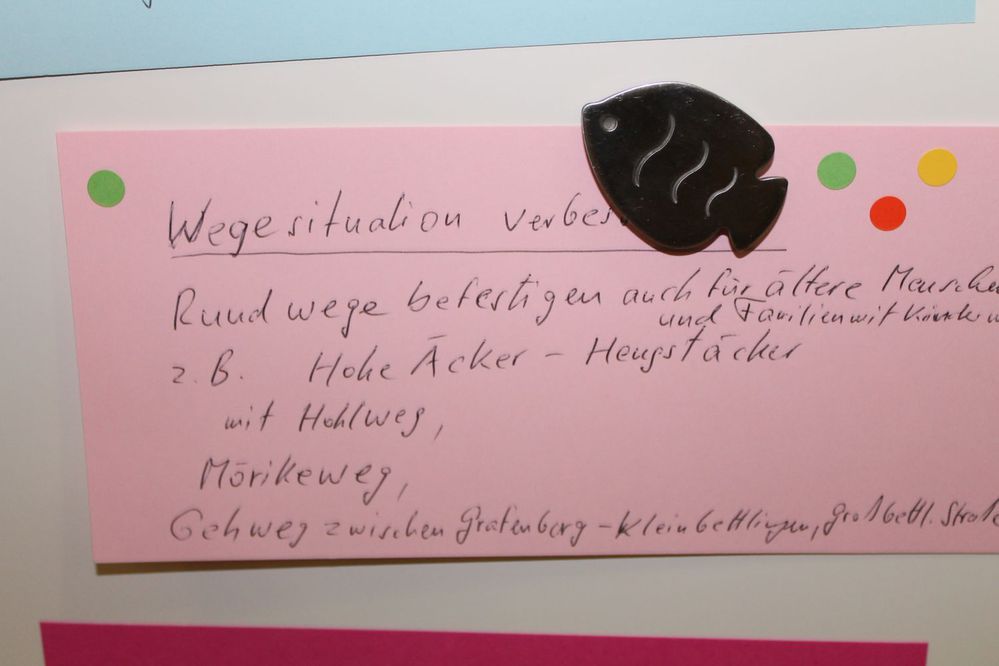 Wegesituation verbes
Rundwege befestigen auch für ältere Mensche
und Familien mit Kinder w
z.B. Hohe Äcker - Hengstäcker
mit Hohlweg,
Mörikeweg,
Gehweg zwischen Grafenberg - Kleinbettlingen, Großbettl. Straße